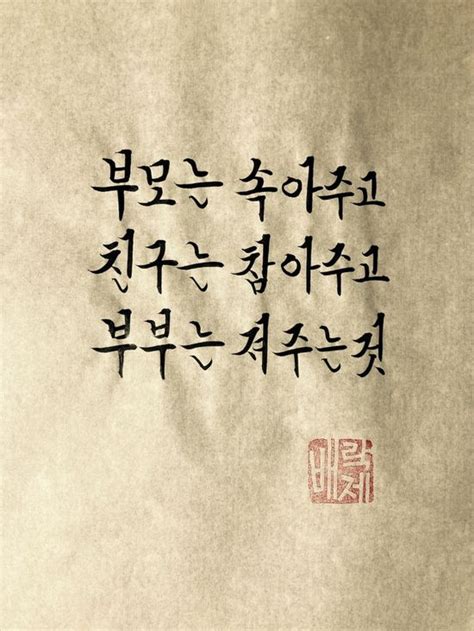 부모는 속아주고
친구는 참아주고
부부는 져주는것